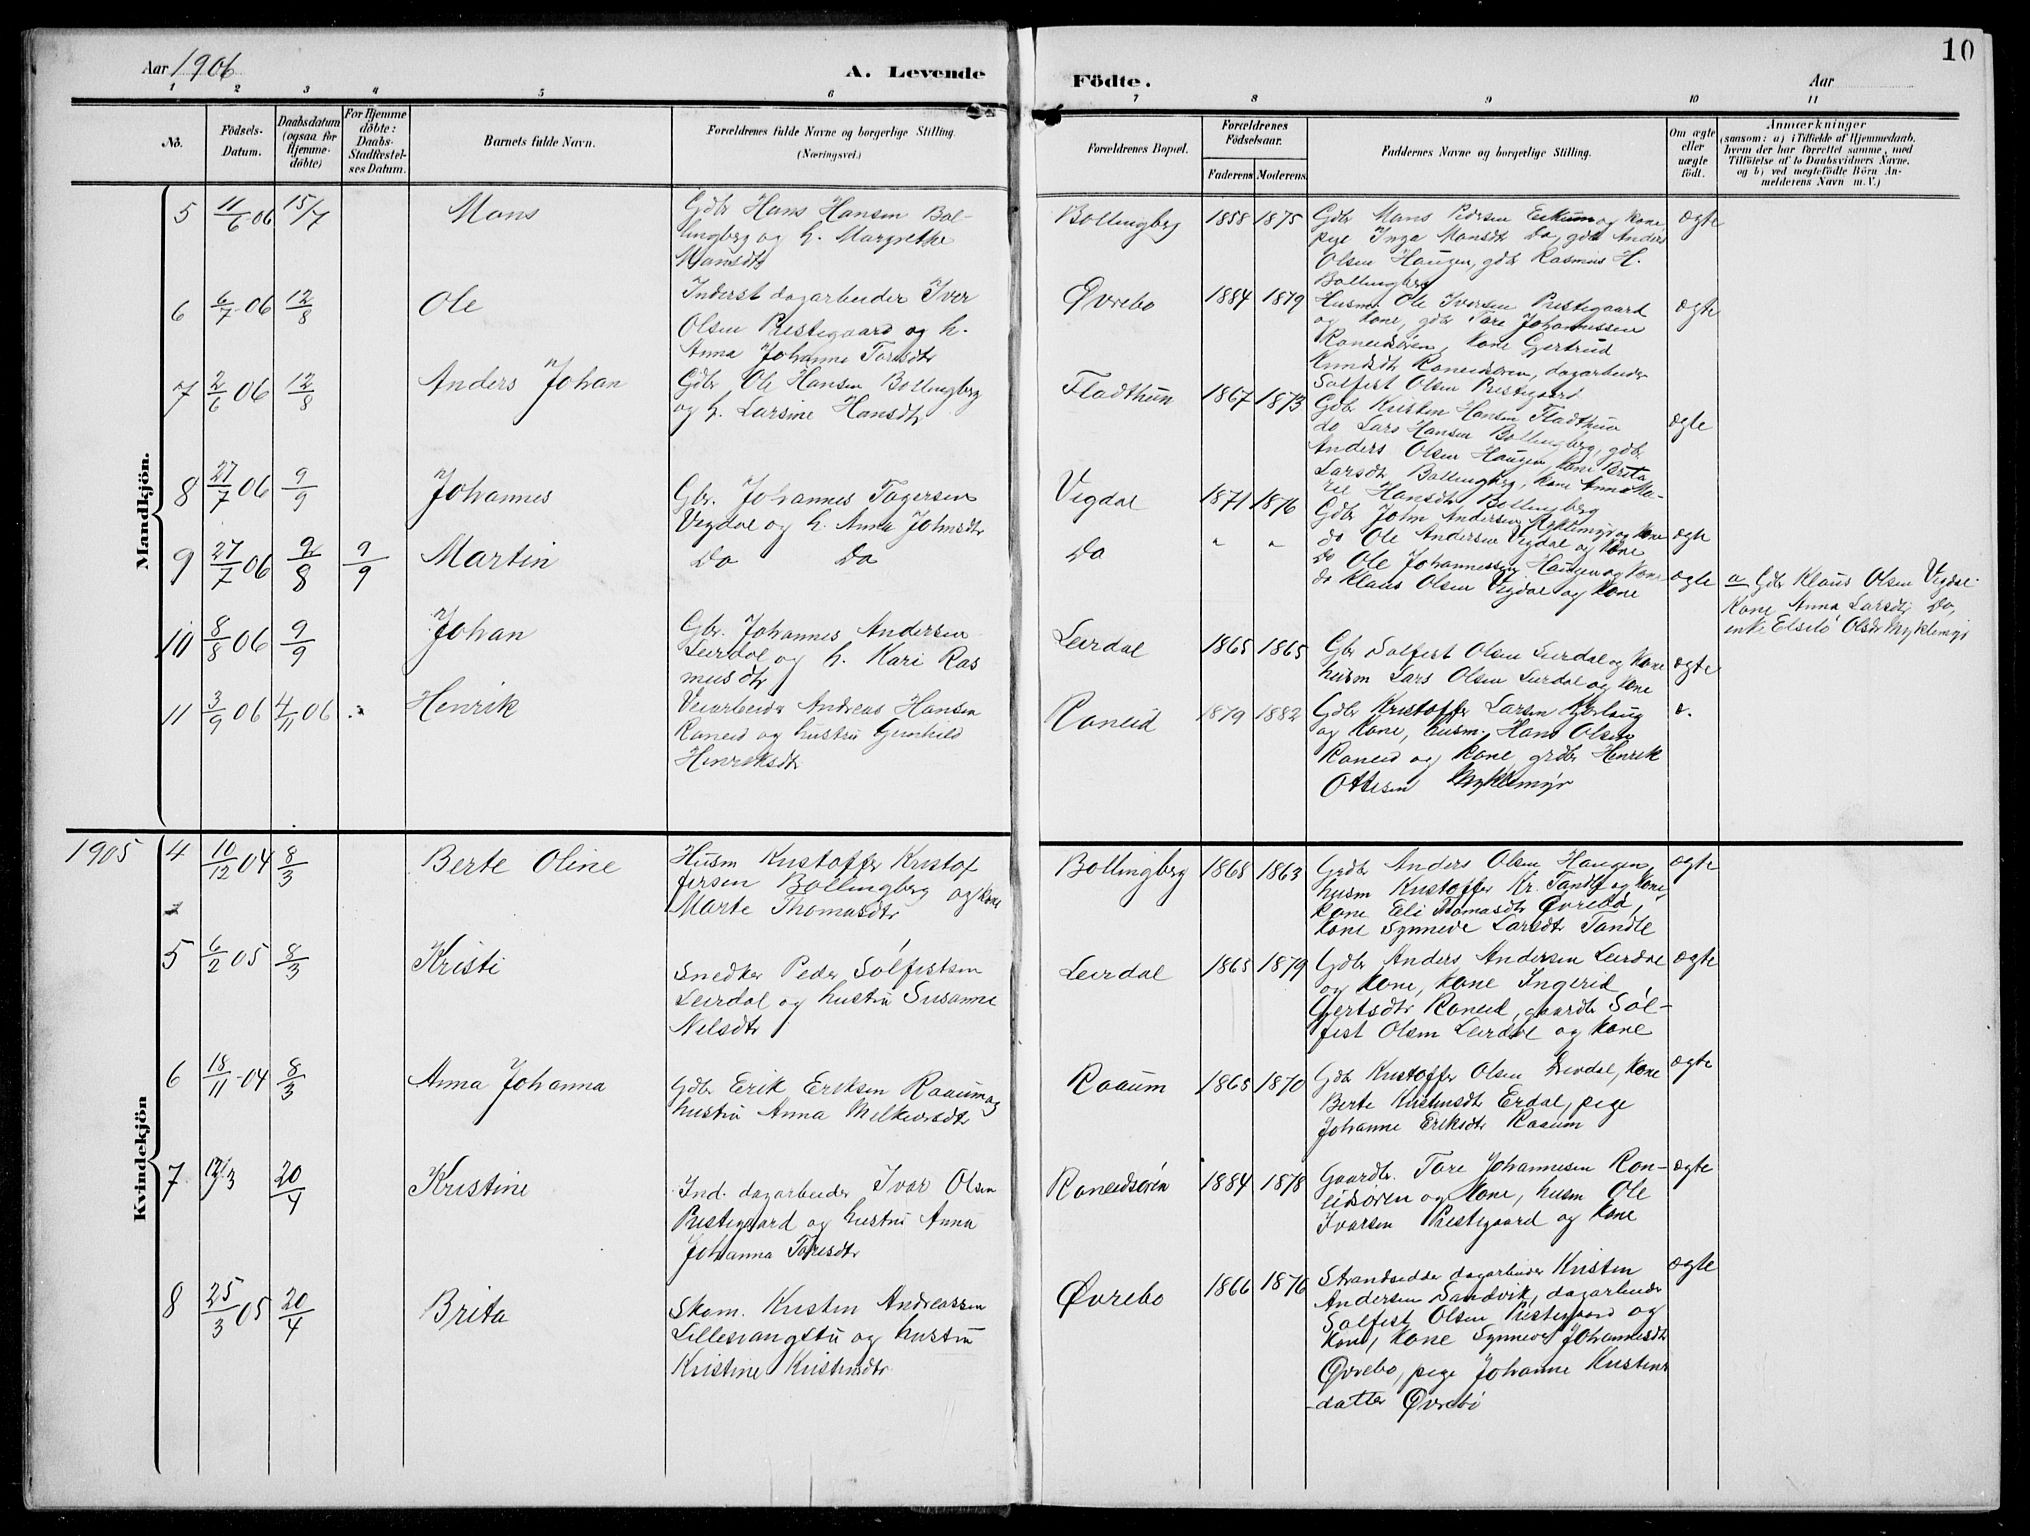 Aar 1906
A. Levende
Födte.
Aar
10
1 2 3 4 5 6 7 8 9 10 11
No.
Födsels-
Datum.
Daabsdatum
(ogsaa for
Hjemme-
döbte)
For Hjemme
döbte:
Daabs-
Stadfestel-
ses Datum.
Barnets fulde Navn.
Forældrenes fulde Navne og borgerlige Stilling.
(Næringsvei.)
Forældrenes Bopæl.
Forældrenes
Födselsaar.
Faderens Moderens
Faddernes Navne og borgerlige Stilling.
Om ægte
eller
uægte
födt.
Anmærkninger
(saasom: a) i Tilfælde af Hjemmedaab,
hvem der har forrettet samme, med
Tilföielse af to Daabsvidners Navne,
og b) ved uegtefödte Börn An-
melderens Navn m. V.)
Mandkjön.
5 11/6 06 15/7 Mons
Gdbr Hans Hansen Bol-
lingberg og h. Margrethe
Monsdtr
Bollingberg 1858 1875
Gdbr Mons Pedersen og kone,
pige Inga Monsdtr do, gdbr Anders
Olsen Haugen, gdbr Rasmus H.
Bollingberg
ægte
6 6/7 06 12/8 Ole
Inderst dagarbeider Iver
Olsen Prestegaard og h.
Anna Johanne Toresdtr
Øvrebo 1884 1879
Husm Ole Iversen Prestegaard
og kone, gdbr Tore Johannessen
Roneidsören, kone Gertrud
Knudsdtr Roneidsören, dagarbeider
Solfest Olsen Prestegaard
ægte
7 2/6 06 12/8 Anders Johan
Gdbr Ole Hansen Bollingberg
og h. Larsine Hansdtr
Fladthun 1867 1873
Gdbr Kristen Hansen Fladthun
do Lars Hansen Bollingberg, gdbr
Anders Olsen Haugen, kone Brita
Larsdtr Bollingberg, kone Anna Ma-
rie Hansdtr Bollingberg
ægte
8 27/7 06 9/9 Johannes
Gbr. Johannes Tagersen
Vigdal og h. Anna Johnsdtr
Vigdal 1871 1876
Gdbr John Andersen Myklemyr og kone
do Ole Andersen Vigdal og kone
ægte
9 27/7 06 9/8 9/9 Martin
Do Do
Do " "
Do Ole Johannessen Haugen og kone
do Klaus Olsen Vigdal og kone
ægte
a Gdbr Klaus Olsen Vigdal
Kone Anna Larsdtr Do,
enke Elsebö Olsdtr Myklemyr
10 8/8 06 9/9 Johan
Gbr. Johannes Andersen
Leirdal og h. Kari Ras
musdtr
Leirdal 1865 1865
Gbr Solfest Olsen Leirdal og kone
husm Lars Olsen Leirdal og kone
ægte
11 3/9 06 4/11 06 Henrik
Veiarbeider Andreas Hansen
Roneid og hustru Gunhild
Henriksdtr
Roneid 1879 1882
Gdbr Kristoffer Larsen
og kone, husm. Hans Olsen
Roneid og kone, grdbr Henrik
Ottesen Myklemyr
Kvindekjön
1905 4 10/12 04 8/3 Berte Oline
Husm Kristoffer Kristof
fersen Bollingberg og kone
Marte Thomasdtr
Bollingberg 1868 1863
Grdbr Anders Olsen Haugen,
husm Kristoffer Kr. Tandle og kone,
kone Eli Thomasdtr Øvrebö,
kone Synneve Larsdtr Tandle
ægte
5 6/2 05 8/3 Kristi
Snedker Peder Solfestsen
Leirdal og hustru Susanne
Nelsdtr
Leirdal 1865 1879
Gdbr Anders Andersen Leirdal
og kone, kone Ingerid
Gjertsdtr Roneid, gaardbr Sol-
fest Olsen Leirdal og kone
ægte
6 18/11 04 8/3 Anna Johanna
Gdbr Erik Eriksen Raaum og
hustru Anna Melkiorsdtr
Raaum 1865 1870
Gdbr Kristoffer Olsen kone
Berte Kristensdtr Erdal, pige
Johanne Eriksdtr Raaum
ægte
7 12/3 20/4 Kristine
Ind. dagarbeider Ivar Olsen
Prestegaard og hustru Anna
Johanna Toresdtr
Roneidsören 1884 1878
Gaardbr. Tore Johannesen Ron-
eidsören og kone, husm Ole
Ivarsen Prestegaard og kone
ægte
8 25/3 05 20/4 Brita
Skom. Kristen Andreassen
og hustru
Kristine Kristensdtr
Øvrebo 1866 1876
Strandsidder dagarbeider Kristen
Andersen Sandvik, dagarbeider
Solfest Olsen Prestegaard og
kone, kone Synneve Johannesdtr
Øvrebo, pige Johanne Kristens
datter Øvrebö
ægte